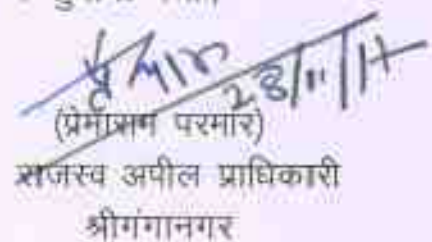 28/11/17
(प्रेमाराम परमार)
राजस्व अपील प्राधिकारी
श्रीगंगानगर